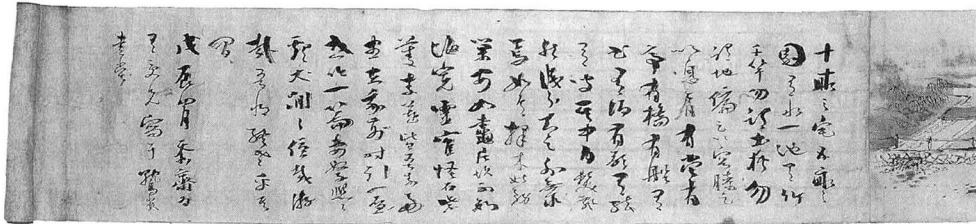 十畝之宅五畝之
園有水一池有竹
千竿勿謂土狹勿
謂地偏足以容膝足
以息肩有堂有
亭有橋有船有
書有酒有歌有絃
有叟在中白鬚飄
然識分知足外無求
焉如鳥擇木姑務
巢安如龜居坎不知
海寬靈寉怪石紫
菱白蓮皆吾所好
盡在我前時引一盃
或吟一篇妻孥熙々
雞犬閒々優哉游
哉吾將終老乎其
間
戊辰月齋
寫于
書堂